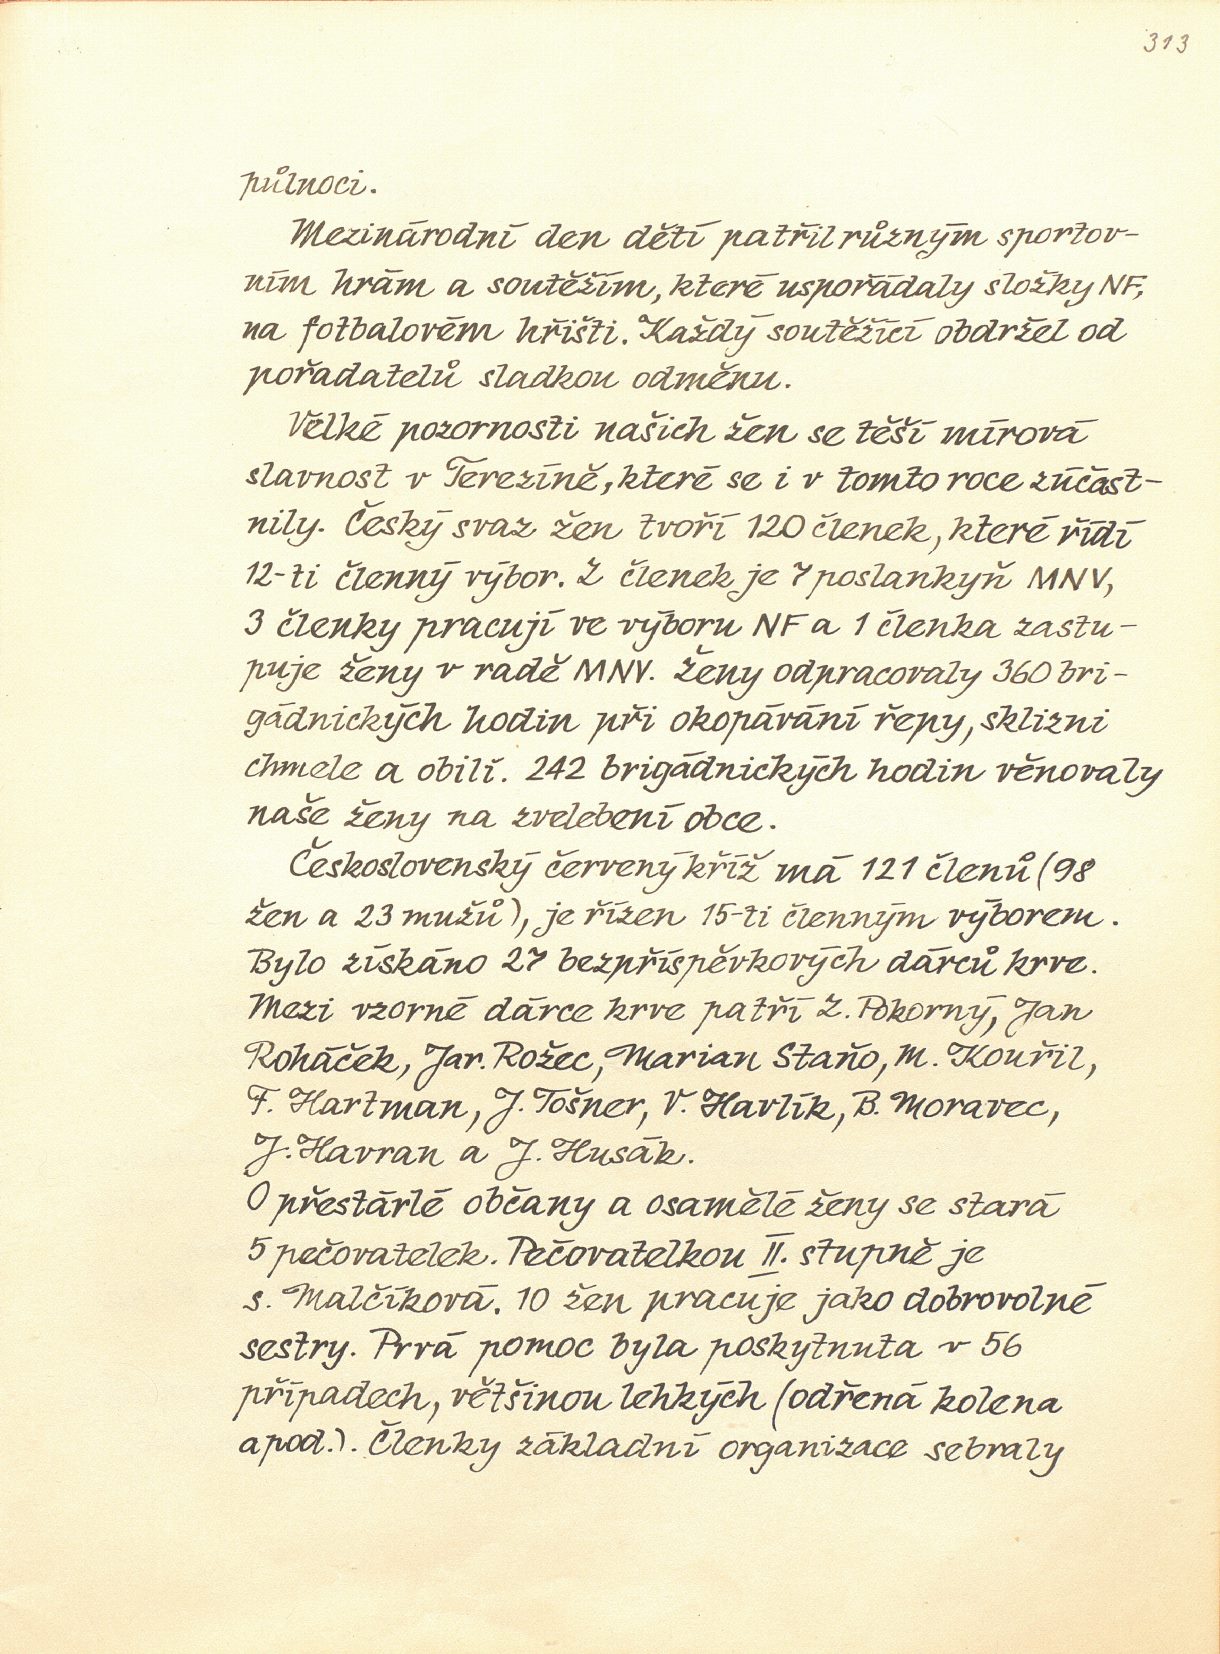 313
půlnoci.
Mezinárodní den dětí patřil různým sportov-
ním hrám a soutěžím, které uspořádaly složky NF,
na fotbalovém hřišti. Každý soutěžící obdržel od
pořadatelů sladkou odměnu.
Velké pozornosti našich žen se těší mírová
slavnost v Terezíně, které se i v tomto roce zúčast-
nily. Český svaz žen tvoří 120 členek, které řídí
12-ti členný výbor. Z členek je 7 poslankyň MNV,
3 členky pracují ve výboru NF a 1 členka zastu-
puje ženy v radě MNV. Ženy odpracovaly 360 bri-
gádnických hodin při okopávání řepy, sklizni
chmele a obilí. 242 brigádnických hodin věnovaly
naše ženy na zvelebení obce.
Československý červený kříž má 121 členů (98
žen a 23 mužů), je řízen 15-ti členným výborem.
Bylo získáno 27 bezpříspěvkových dárců krve.
Mezi vzorné dárce krve patří Z. Pokorný, Jan
Roháček, Jar. Rožec, Marian Staňo, M. Kouřil,
F. Hartman, J. Tošner, V. Havlík, B. Moravec,
J. Havran a J. Husák.
O přestárlé občany a osamělé ženy se stará
5 pečovatelek. Pečovatelkou II. stupně je
s. Malčíková. 10 žen pracuje jako dobrovolné
sestry. Prvá pomoc byla poskytnuta v 56
případech, většinou lehkých (odřená kolena
apod.). Členky základní organizace sebraly